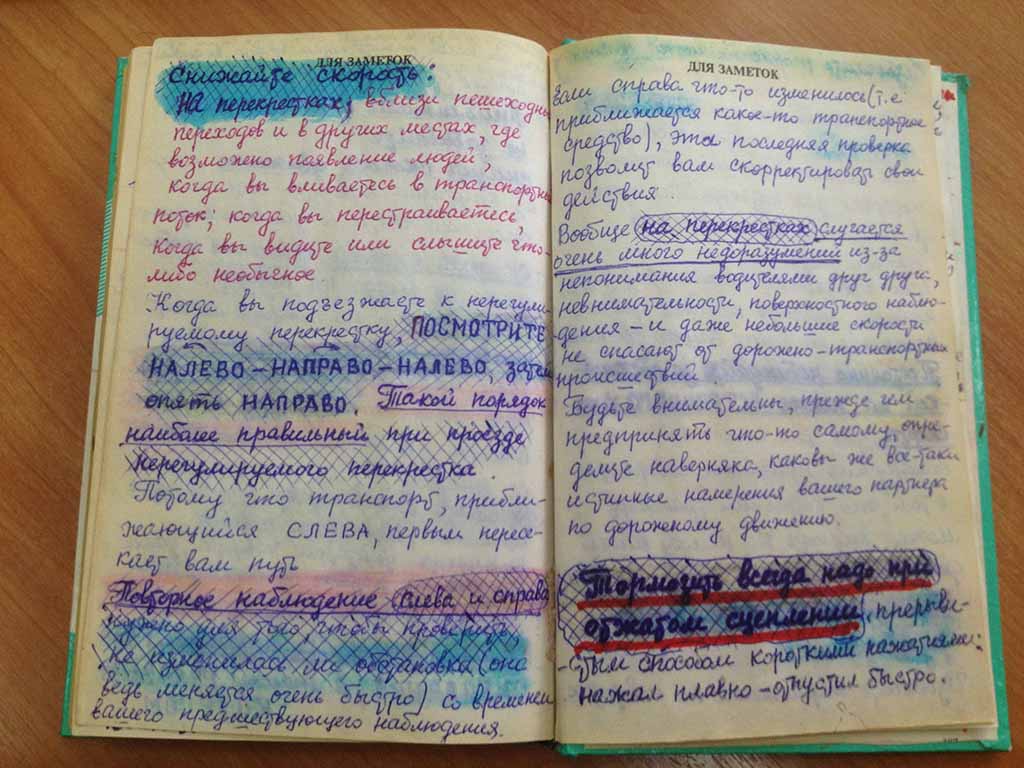 ДЛЯ ЗАМЕТОК
Снижайте скорость:
на перекрестках; вблизи пешеходных
переходов и в других местах, где
возможно появление людей;
когда вы вливаетесь в транспортный
поток; когда вы перестраиваетесь,
когда вы видите или слышите что-
либо необычное.
Когда вы подъезжаете к нерегули-
руемому перекрестку, ПОСМОТРИТЕ
НАЛЕВО-НАПРАВО-НАЛЕВО, затем
опять НАПРАВО. Такой порядок
наиболее правильный при проезде
нерегулируемого перекрестка.
Потому что транспорт, прибли-
жающийся СЛЕВА, первым пересе-
кает вам путь
Повторное наблюдение слева и справа
нужно для того, чтобы проверить,
не изменилась ли обстановка (она
ведь меняется очень быстро) со времени
вашего предшествующего наблюдения.
ДЛЯ ЗАМЕТОК
Если справа что-то изменилось (т.е
приближается какое-то транспортное
средство), эта последняя проверка
позволит вам скорректировать свои
действия.
Вообще на перекрестках случается
очень много недоразумений из-за
непонимания водителями друг друга,
невнимательности, поверхностного наблю-
дения - и даже небольшие скорости
не спасают от дорожно-транспортных
происшествий.
Будьте внимательны, прежде чем
предпринять что-то самому, опре-
делите наверняка, каковы же все-таки
истинные намерения вашего партнера
по дорожному движению.
Тормозить всегда надо при
отжатом сцеплении, прерыви-
стым способом короткими нажатиями:
нажал плавно - отпустил быстро.